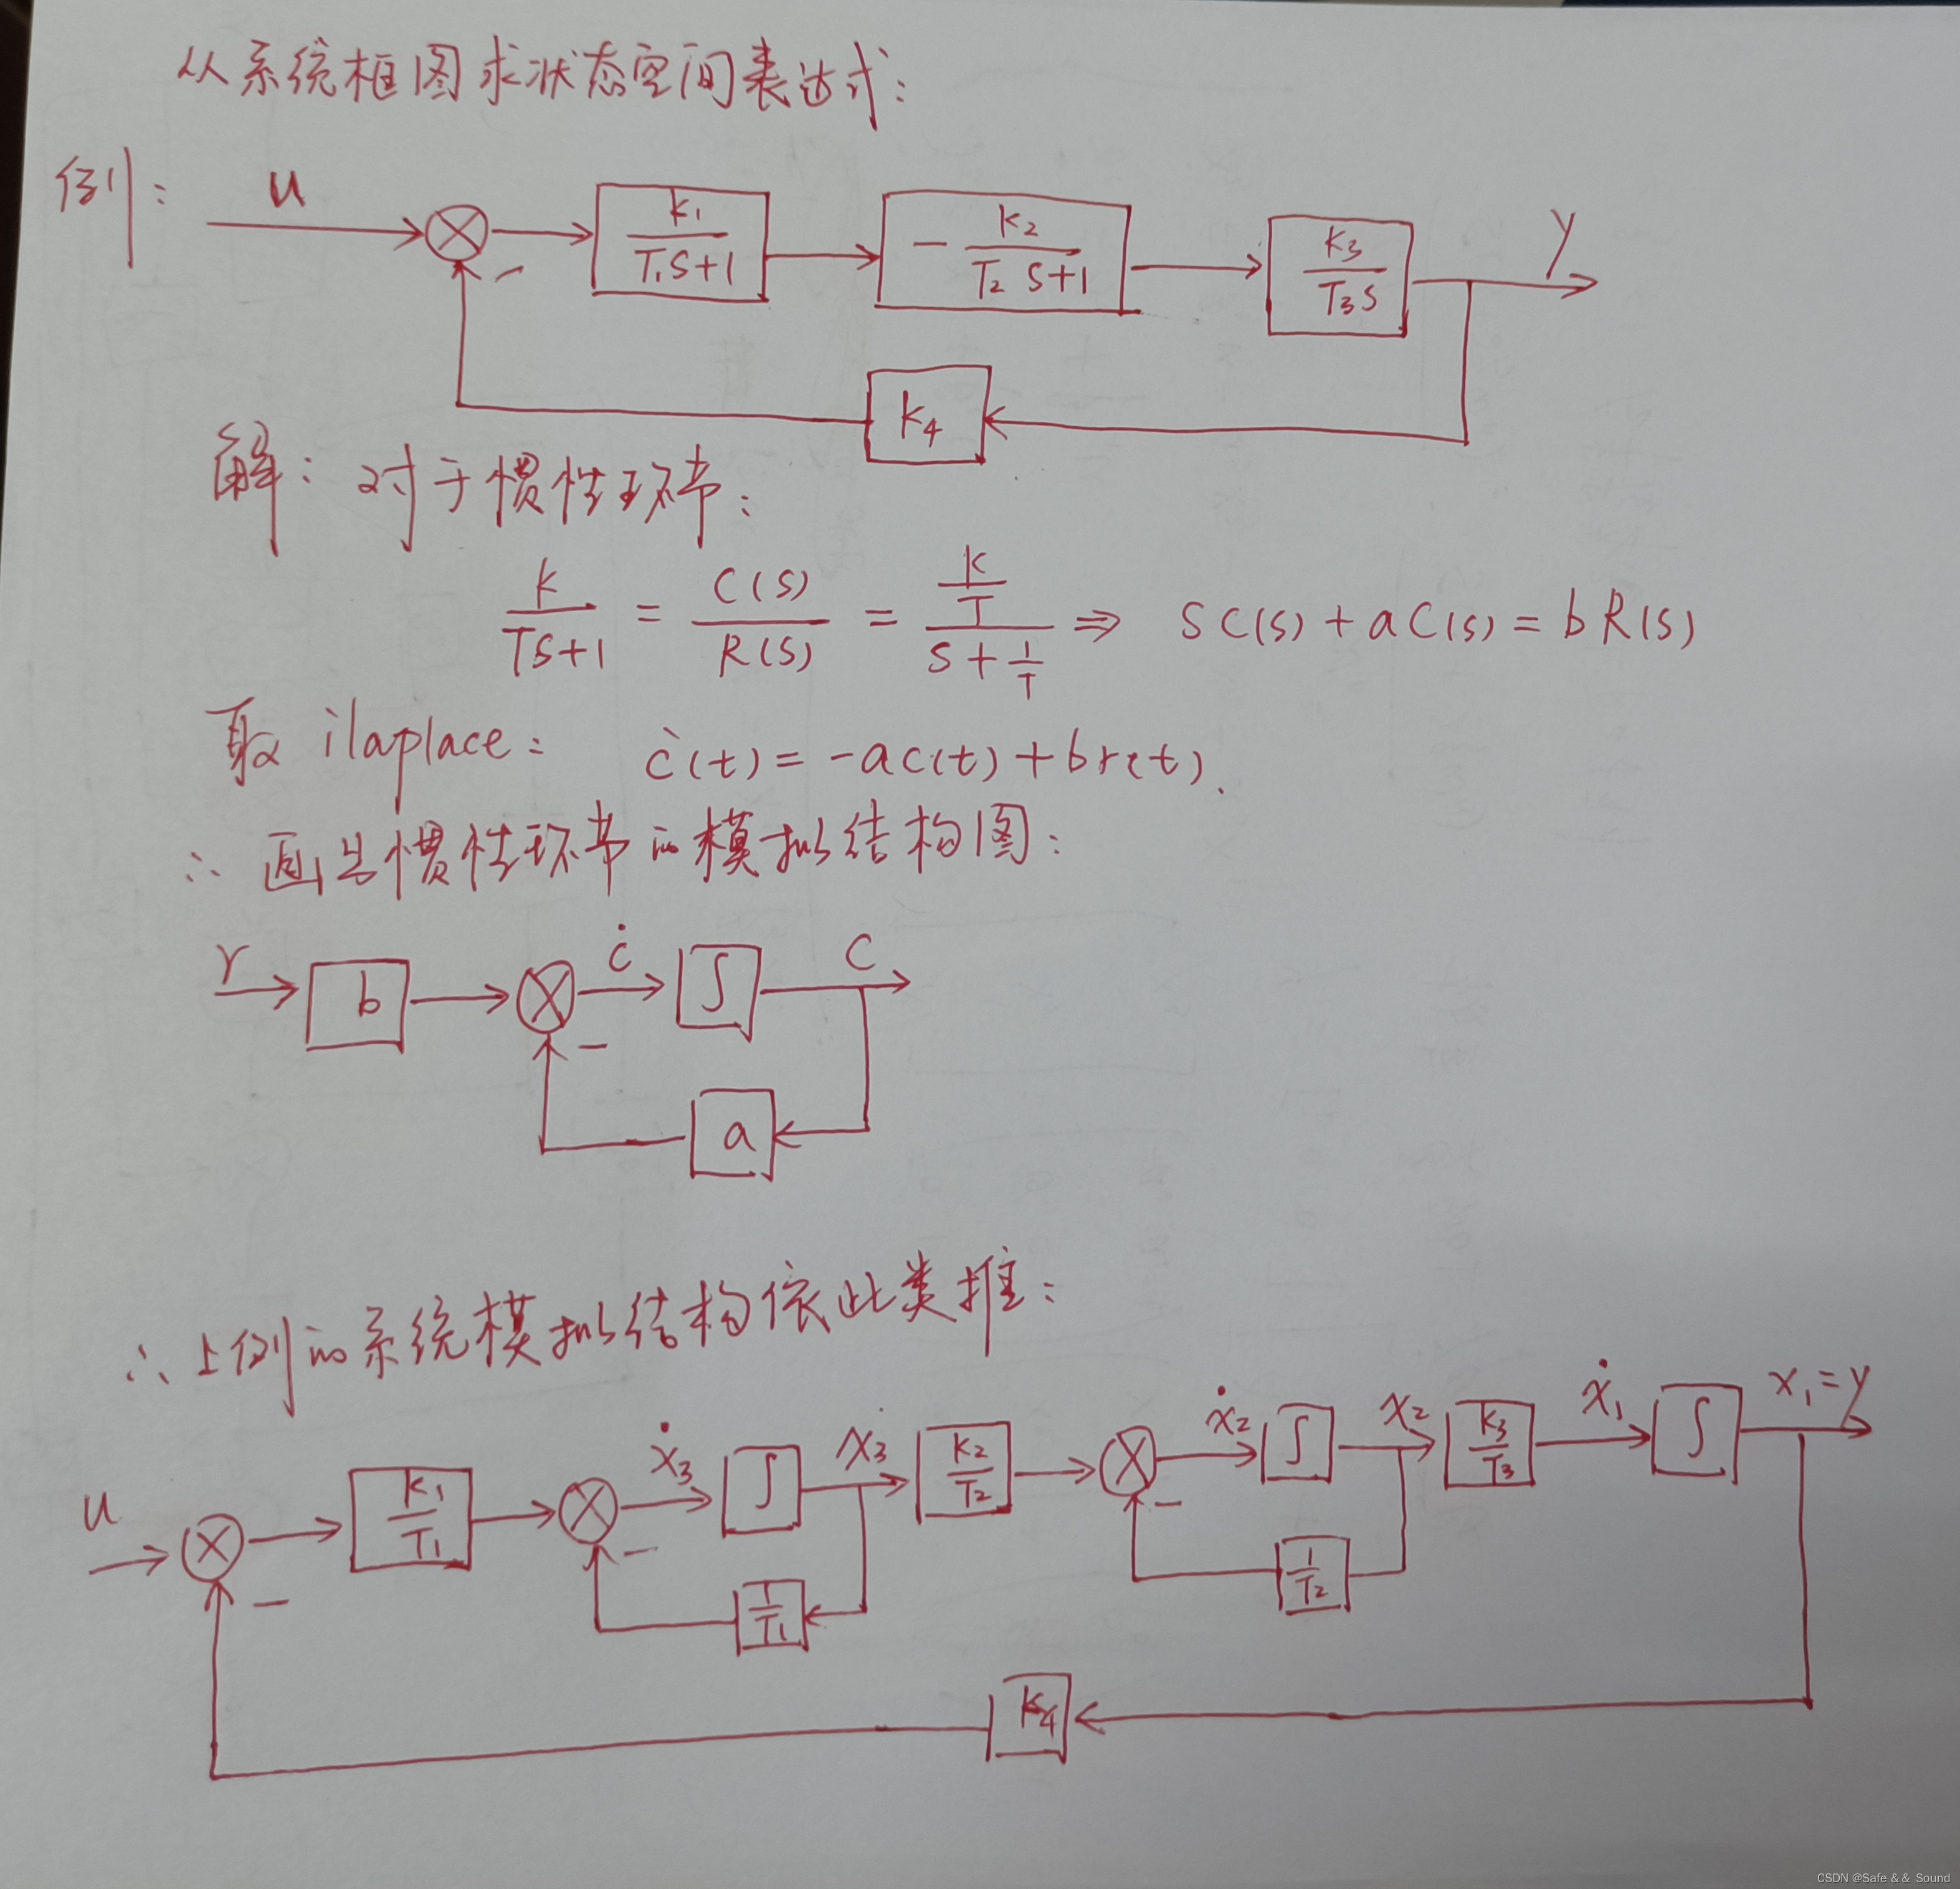 从系统框图求状态空间表达式：
例：
u
K₁/(T₁S+1)
- K₂/(T₂S+1)
K₃/(T₃S)
y
-
K₄
解：对于惯性环节：
K/(TS+1) = C(S)/R(S) = (K/T)/(S+1/T) ⇒ SC(S)+aC(S)=bR(S)
取 ilaplace： ċ(t)=-ac(t)+br(t).
∴ 画出惯性环节的模拟结构图：
r b ċ ∫ C
-
a
∴上例的系统模拟结构依此类推：
u K₁/T₁ ẋ₃ ∫ x₃ K₂/T₂ ẋ₂ ∫ x₂ K₃/T₃ ẋ₁ ∫ x₁=y
- - -
1/T₁ 1/T₂
K₄
CSDN @Safe & & Sound